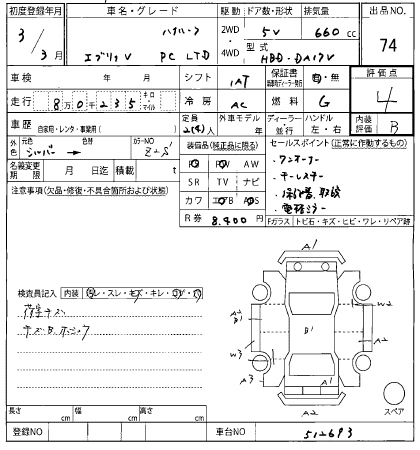 初度登録年月 車名・グレード 駆動 ドア数・形状 排気量 出品NO.
3/3月 エブリィV ハイルーフ PC LTD 2WD・4WD 5V 660 cc 74
型式 HBD-DA17V
車検 年 月 シフト IAT 保証書 有・無 評価点
走行 8万0千235 キロ・マイル 冷房 AC 燃料 G 4
車歴 自家用・レンタ・事業用( ) 定員 2(4)人 外車モデル 年 ディーラー・並行 ハンドル 左・右 内装評価 B
外色 元色 シルバー → 色替 カラーNO Z2S
装備品(純正品に限る) セールスポイント(正常に作動するもの)
名義変更期限 月 日迄 積載 t
PS PW AW
SR TV ナビ
カワ エアB ABS
R券 8,400円
・ワンオーナー
・キーレスキー
・保証書、取説
・電格ミラー
Fガラス トビ石・キズ・ヒビ・ワレ・リペア跡
注意事項(欠品・修復・不具合箇所および状態)
検査員記入 内装
薄キズ
A1
A2 B1
B1
W2
A2
W3
A3
A3
A2
スペア
長さ cm 幅 cm 高さ cm
登録NO 車台NO 512693